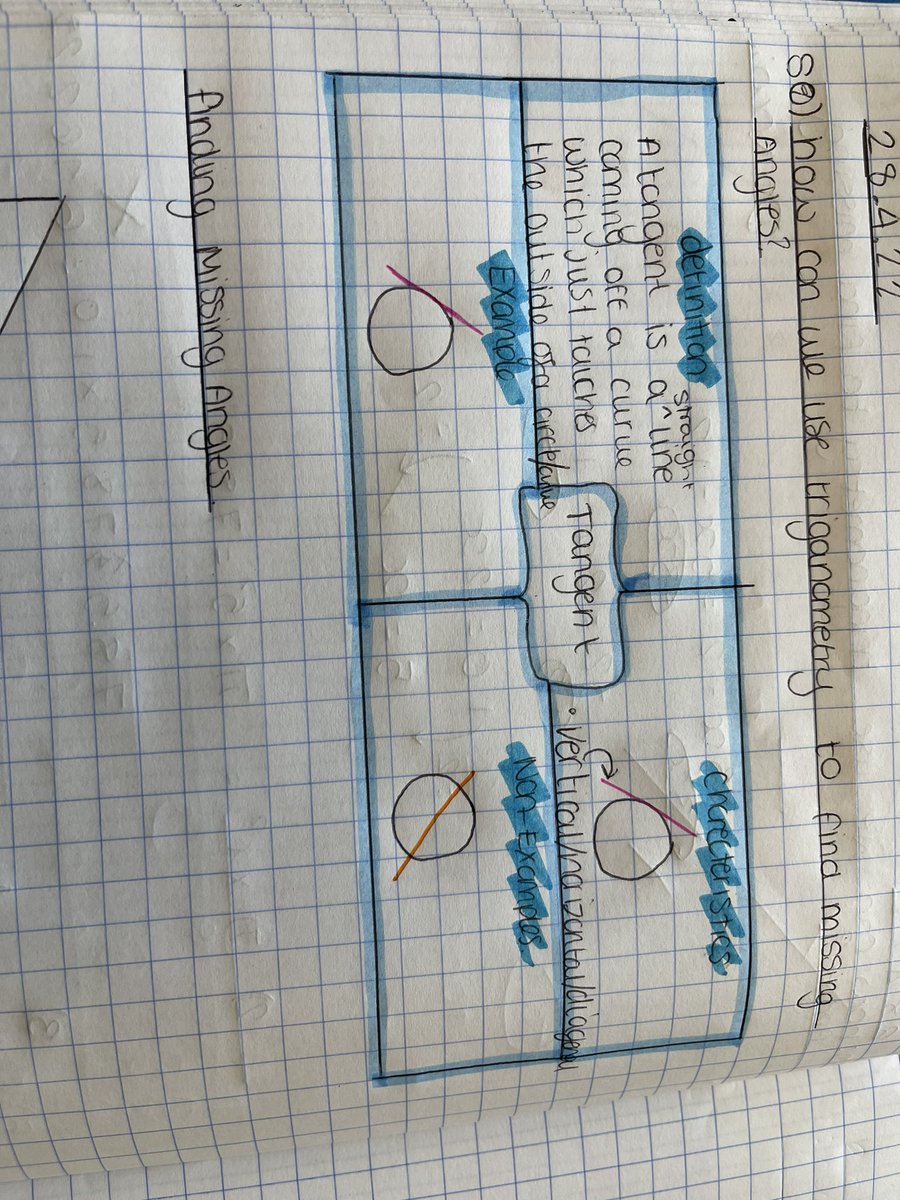 28.4.22
SQ) How can we use triganametry to find missing
Angles?
definition
straight
A tangent is a^line
coming off a curve
which just touches
the outside of a circle/curve
charecteristics
• vertical/horizontal/diagonal
Tangent
Example
Non-Examples
Finding Missing Angles